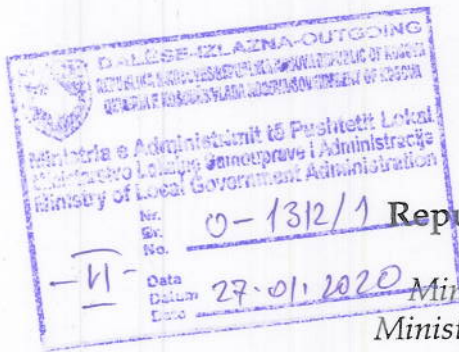 DALËSE-IZLAZNA-OUTGOING
Ministria e Administrimit të Pushtetit Lokal
Ministarstvo Lokalne Samouprave i Administracije
Ministry of Local Government Administration
Nr.
Br.
No.
0-1312/1
Repu
-VI-
Data
Datum
Date
27.01.2020
Min
Minist